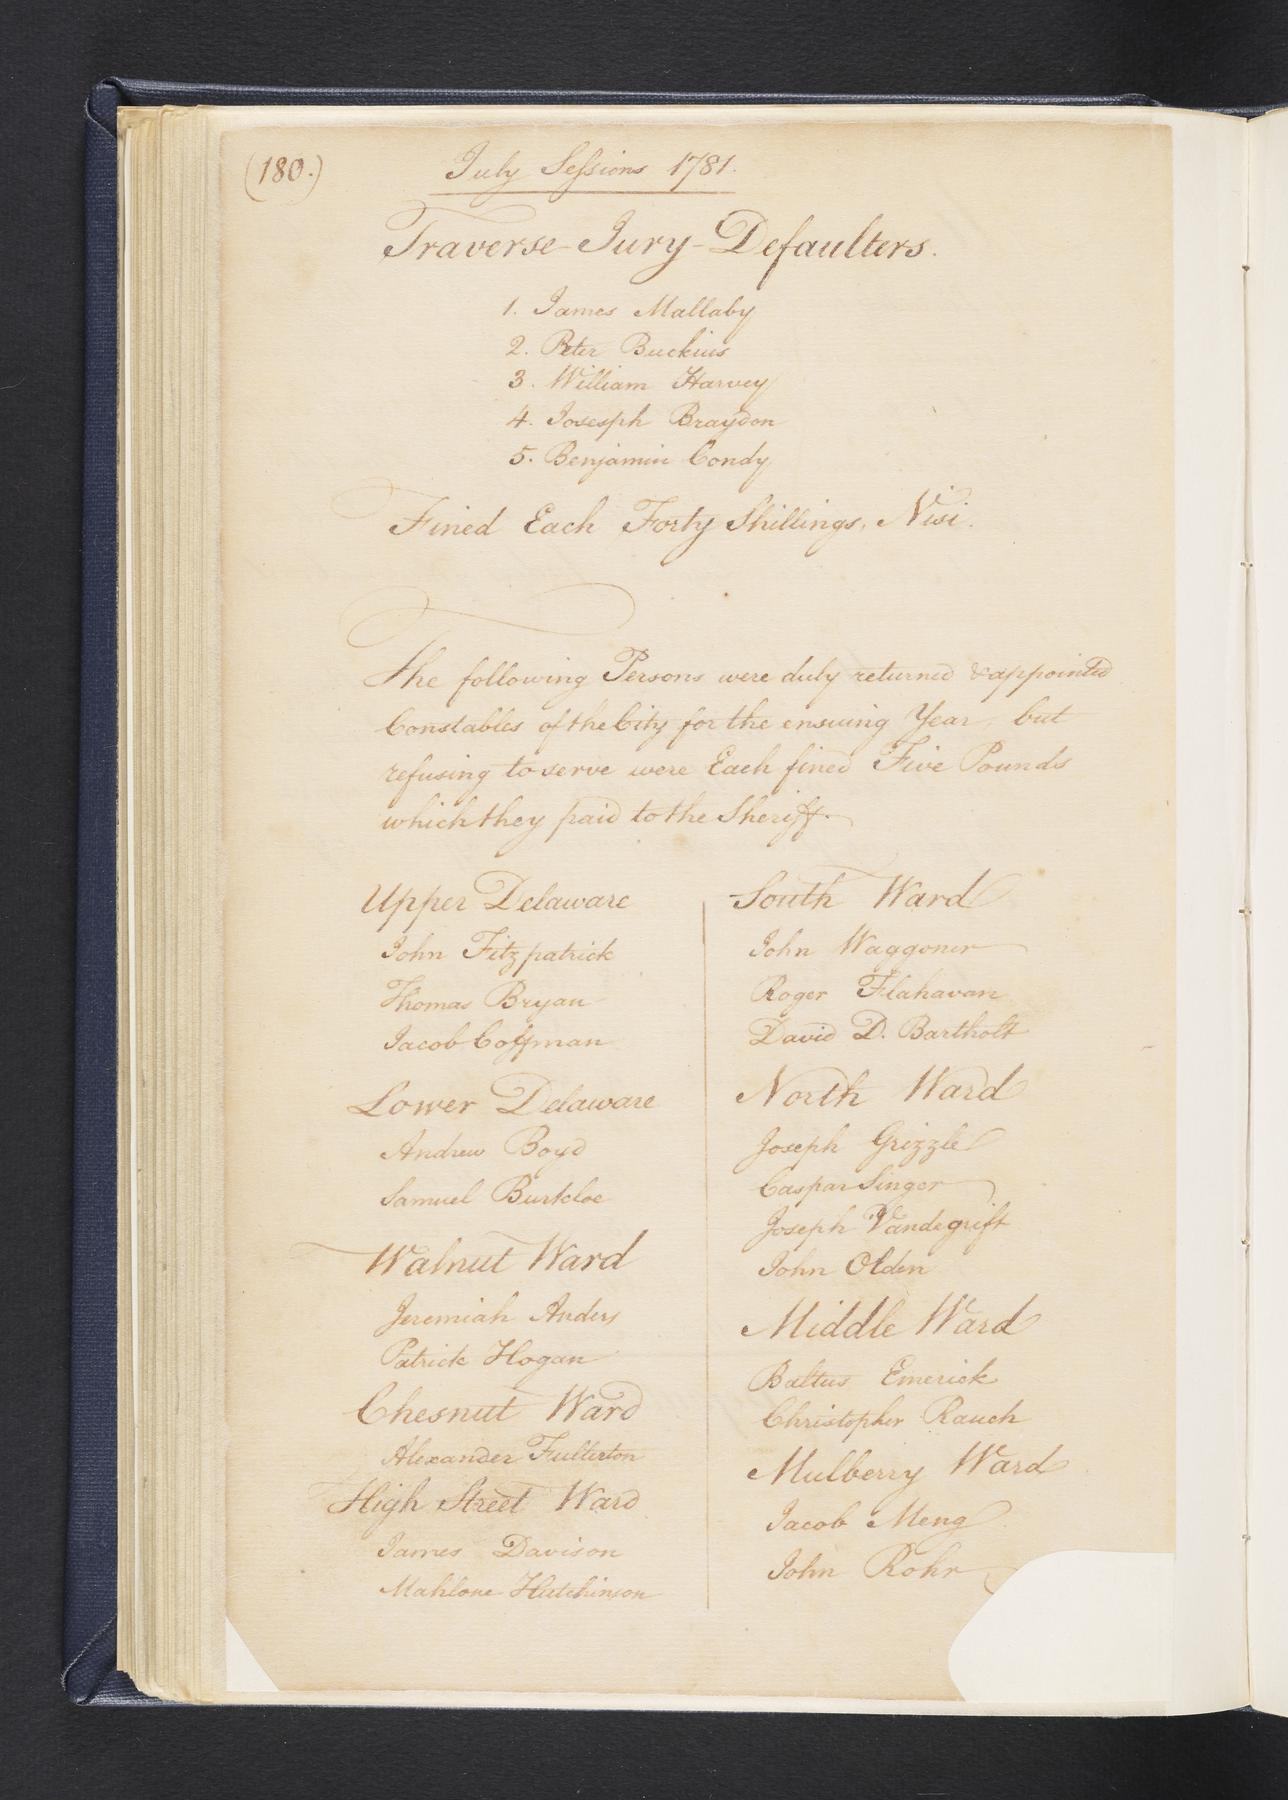 (180.)
July Sessions 1781.
Traverse-Jury-Defaulters.
1. James Mallaby
2. Peter Buckius
3. William Harvey
4. Josesph Braydon
5. Benjamin Condy
Fined Each Forty Shillings, Nisi.
The following Persons were duly returned & appointed
Constables of the City for the ensuing Year, but
refusing to serve were Each fined Five Pounds
which they paid to the Sheriff.
Upper Delaware
John Fitzpatrick
Thomas Bryan
Jacob Coffman
Lower Delaware
Andrew Boyd
Samuel Burkloe
Walnut Ward
Jeremiah Anders
Patrick Hogan
Chesnut Ward
Alexander Fullerton
High Street Ward
James Davison
Mahlone Hutchinson
South Ward
John Waggoner
Roger Flahavan
David D. Bartholt
North Ward
Joseph Grizzle
Caspar Singer
Joseph Vandegrift
John Olden
Middle Ward
Baltus Emerick
Christopher Rauch
Mulberry Ward
Jacob Meng
John Rohr